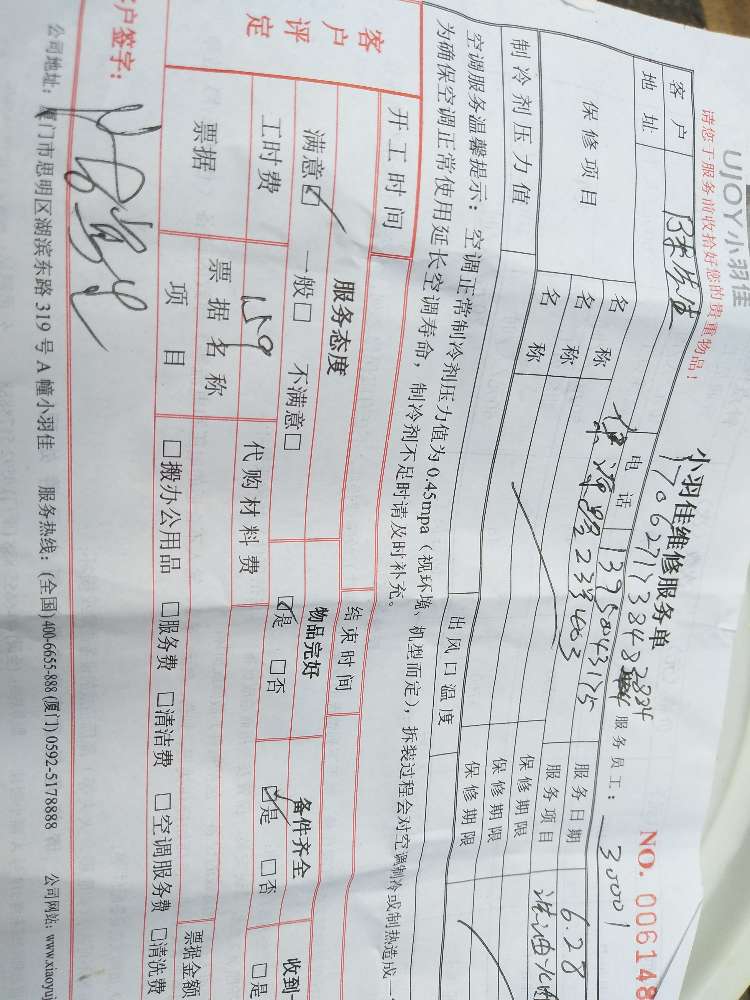 UJOY小羽佳
小羽佳维修服务单
NO. 006148
请您于服务前收拾好您的贵重物品!
1706271738483834
服务员工: 30001
客户 陈先生 电话 13950043175 服务日期 6.28
地址 2栋403 服务项目
保修项目 名称 保修期限
名称 保修期限
名称 保修期限
制冷剂压力值 出风口温度
空调服务温馨提示: 空调正常制冷剂压力值为0.45mpa (视环境、机型而定), 拆装过程会对空调制冷或制热造成一
为确保空调正常使用延长空调寿命, 制冷剂不足时请及时补充。
开工时间 结束时间
客户评定 服务态度 物品完好 备件齐全 收到
满意☑ 一般□ 不满意□ ☑是 □否 ☑是 □否 □是
工时费 159 代购材料费
票据 票据名称 票据金额
项目 □搬办公用品 □服务费 □清洁费 □空调服务费 □清洗费
户签字:
公司地址: 厦门市思明区湖滨东路319号A幢小羽佳 服务热线: (全国)400-6655-888 (厦门) 0592-5178888 公司网站: www.xiaoyuj